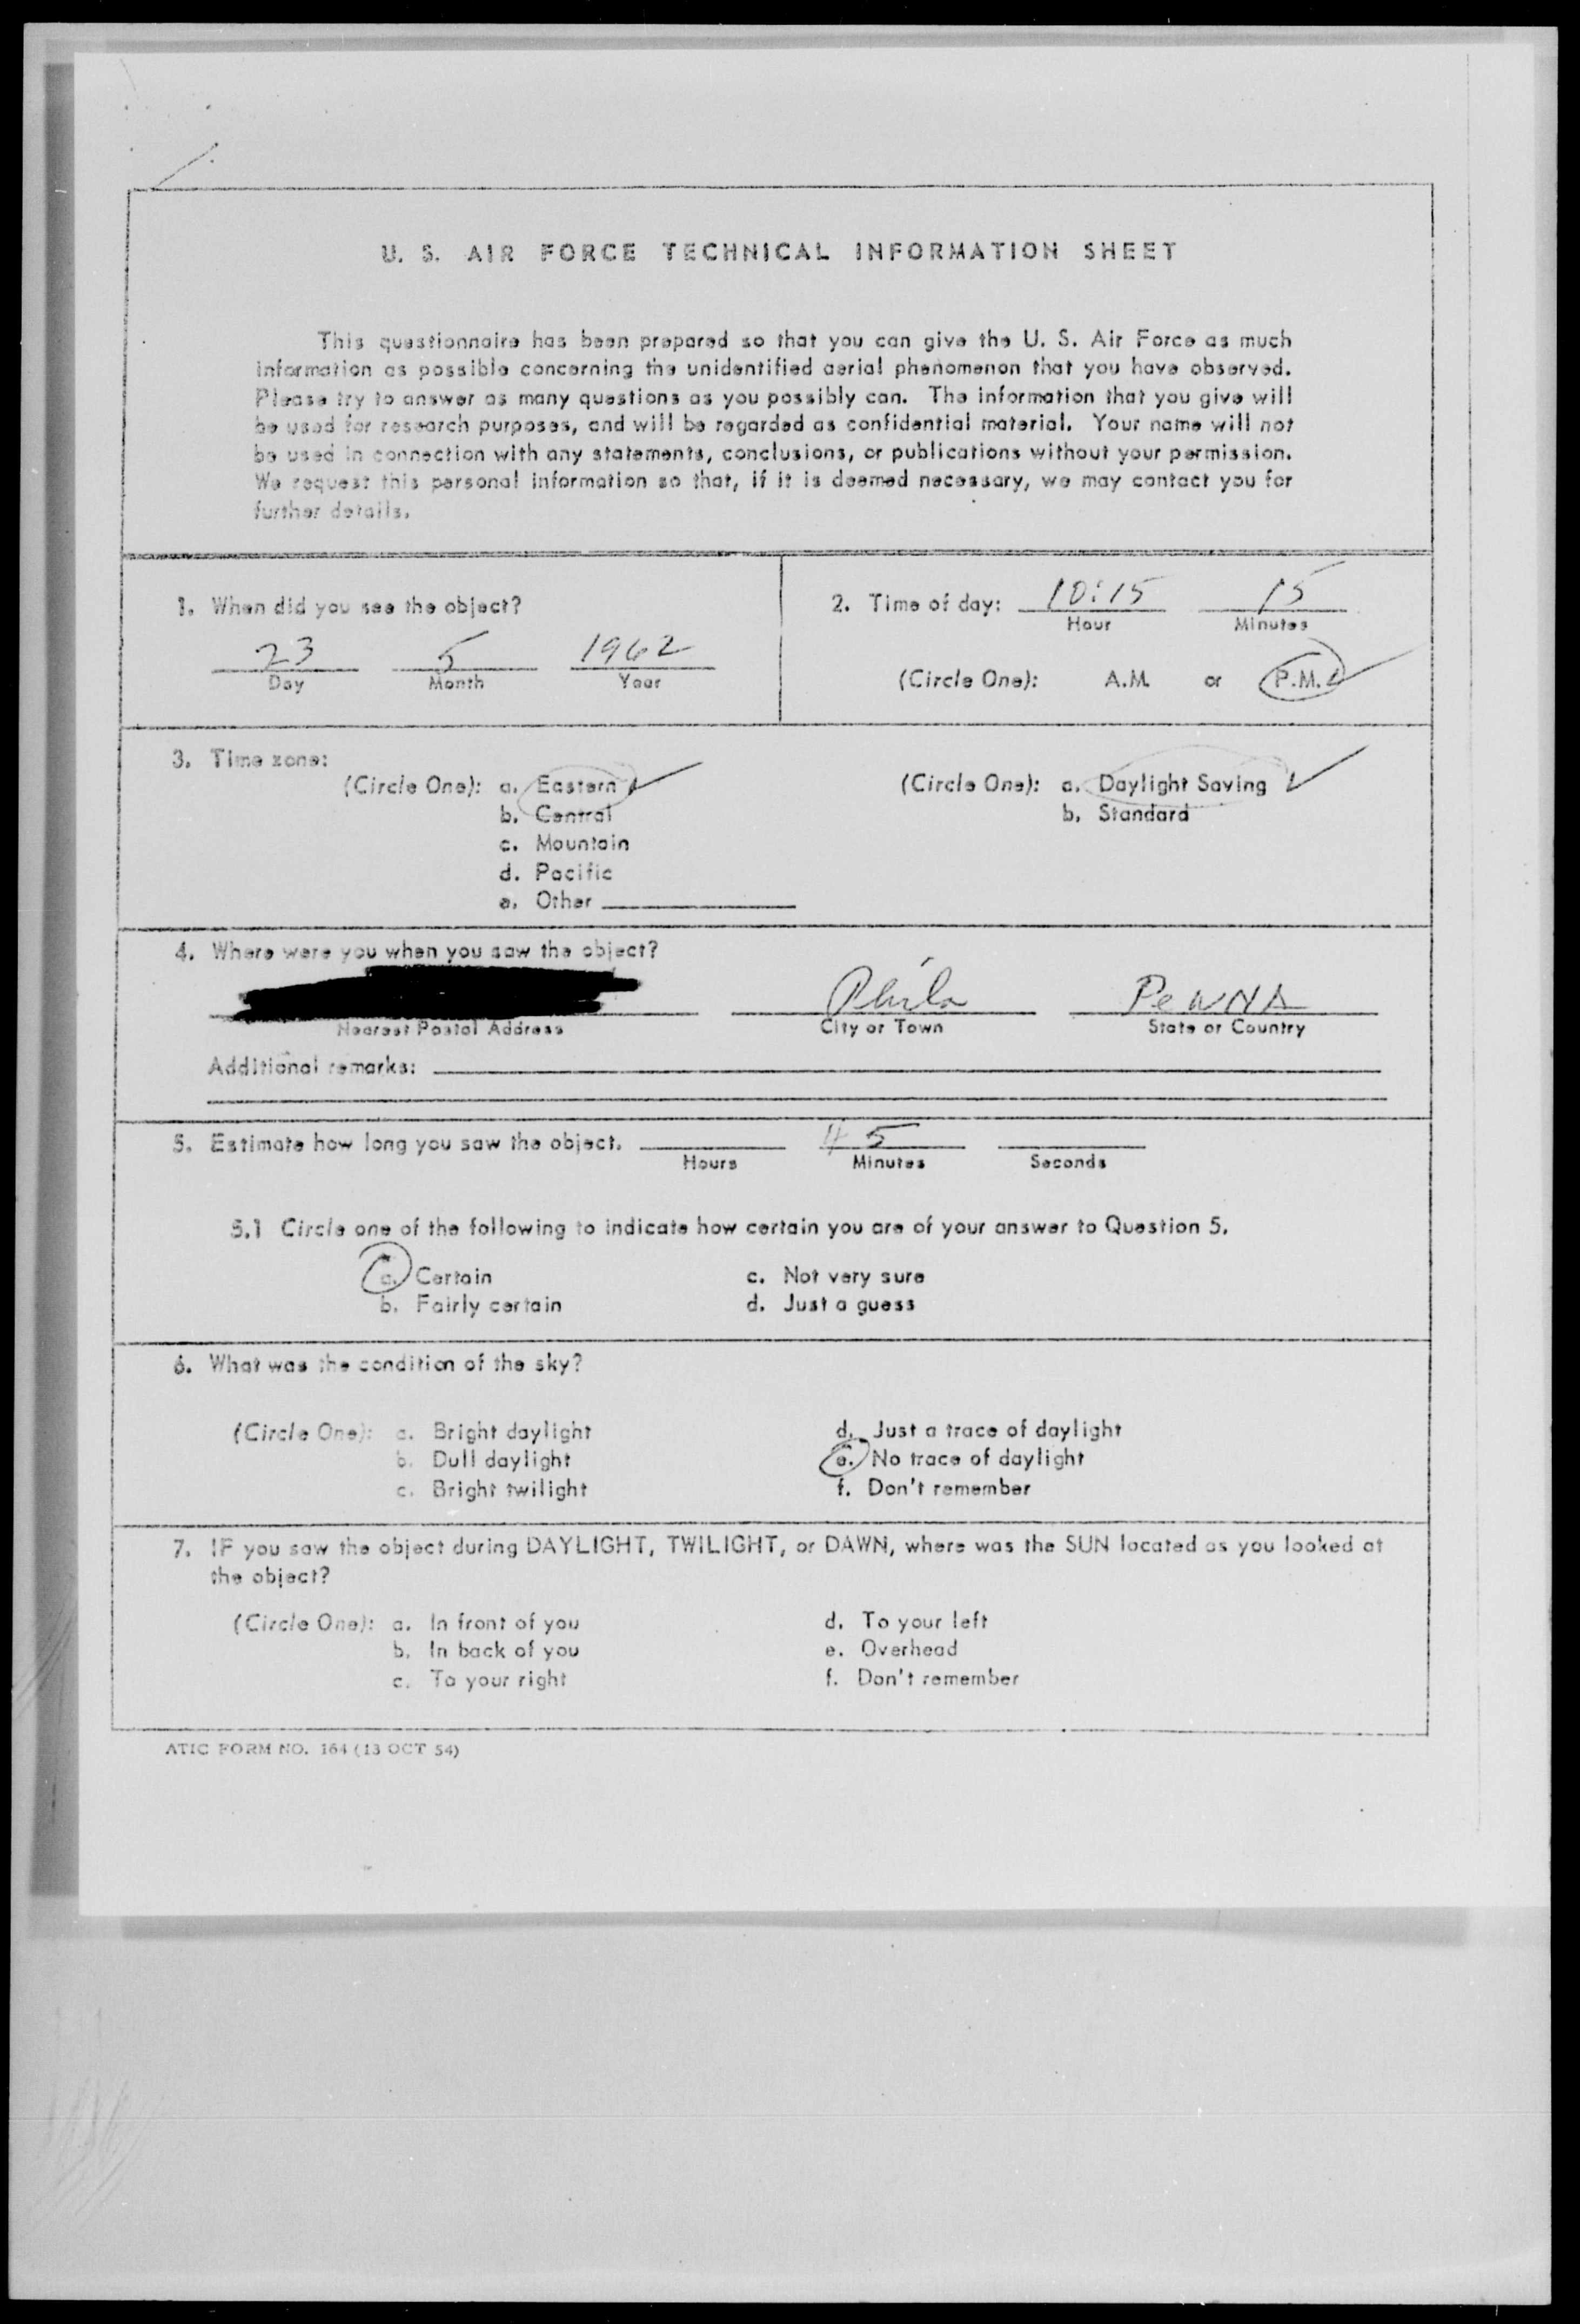 U. S. AIR FORCE TECHNICAL INFORMATION SHEET
This questionnaire has been prepared so that you can give the U. S. Air Force as much
information as possible concerning the unidentified aerial phenomenon that you have observed.
Please try to answer as many questions as you possibly can. The information that you give will
be used for research purposes, and will be regarded as confidential material. Your name will not
be used in connection with any statements, conclusions, or publications without your permission.
We request this personal information so that, if it is deemed necessary, we may contact you for
further details.
1. When did you see the object?
23 5 1962
Day Month Year
2. Time of day: 10:15 15
Hour Minutes
(Circle One): A.M. or P.M.
3. Time zone:
(Circle One): a. Eastern
b. Central
c. Mountain
d. Pacific
e. Other
(Circle One): a. Daylight Saving
b. Standard
4. Where were you when you saw the object?
Phila PeNNA
Nearest Postal Address City or Town State or Country
Additional remarks:
5. Estimate how long you saw the object. 45
Hours Minutes Seconds
5.1 Circle one of the following to indicate how certain you are of your answer to Question 5.
a. Certain c. Not very sure
b. Fairly certain d. Just a guess
6. What was the condition of the sky?
(Circle One): a. Bright daylight d. Just a trace of daylight
b. Dull daylight e. No trace of daylight
c. Bright twilight f. Don't remember
7. IF you saw the object during DAYLIGHT, TWILIGHT, or DAWN, where was the SUN located as you looked at
the object?
(Circle One): a. In front of you d. To your left
b. In back of you e. Overhead
c. To your right f. Don't remember
ATIC FORM NO. 164 (13 OCT 54)